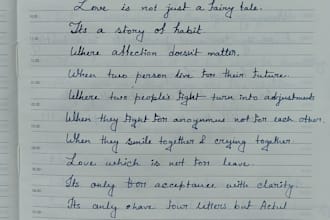 Love is not just a fairy tale.
Its a story of habit.
Where affection doesn't matter.
When two person live for their future.
Where two people's fight turn into adjustments
When they fight for anyonmus not for each other.
When they smile together & crying together.
Love which is not for leave.
Its only for acceptance with clarity.
Its only have four letters but